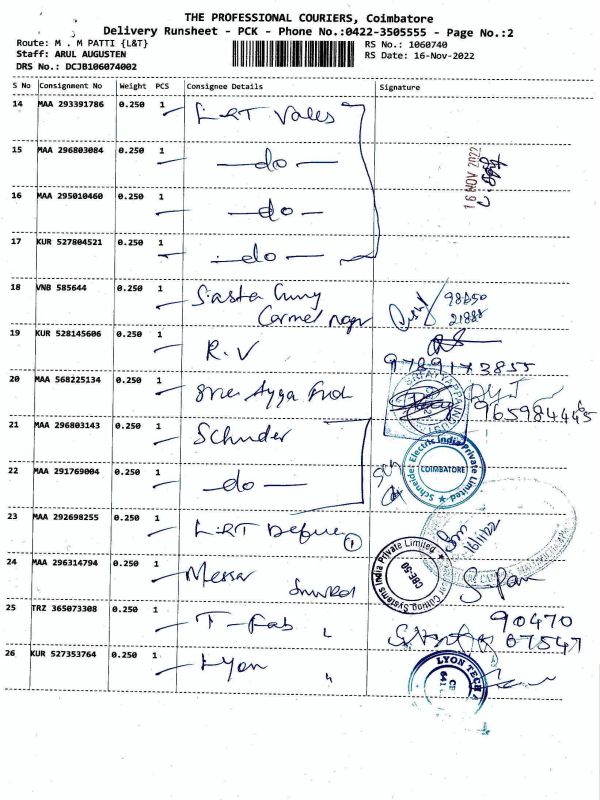 THE PROFESSIONAL COURIERS, Coimbatore
Delivery Runsheet - PCK - Phone No.:0422-3505555 - Page No.:2
Route: M . M PATTI {L&T}
RS No.: 1060740
Staff: ARUL AUGUSTEN
RS Date: 16-Nov-2022
DRS No.: DCJB106074002
S No Consignment No Weight PCS Consignee Details Signature
14 MAA 293391786 0.250 1 L&T Valves
16 NOV 2022
15 MAA 296803084 0.250 1 —do—
16 MAA 295010460 0.250 1 —do—
17 KUR 527804521 0.250 1 —do—
18 VNB 585644 0.250 1 98950
Carmel nagr 21888
19 KUR 528145606 0.250 1 R.V
9789173855
20 MAA 568225134 0.250 1 Sree Ayya
21 MAA 296803143 0.250 1 Schnder
Schneider Electric India Private Limited
COIMBATORE
22 MAA 291769004 0.250 1 —do— Sch
23 MAA 292698255 0.250 1 L&T Defnce 1
24 MAA 296314794 0.250 1 Messer
Cutting Systems India Private Limited
CBE-50
25 TRZ 365073308 0.250 1 T-Fab 90470
07547
26 KUR 527353764 0.250 1 Lyon
LYON TECH